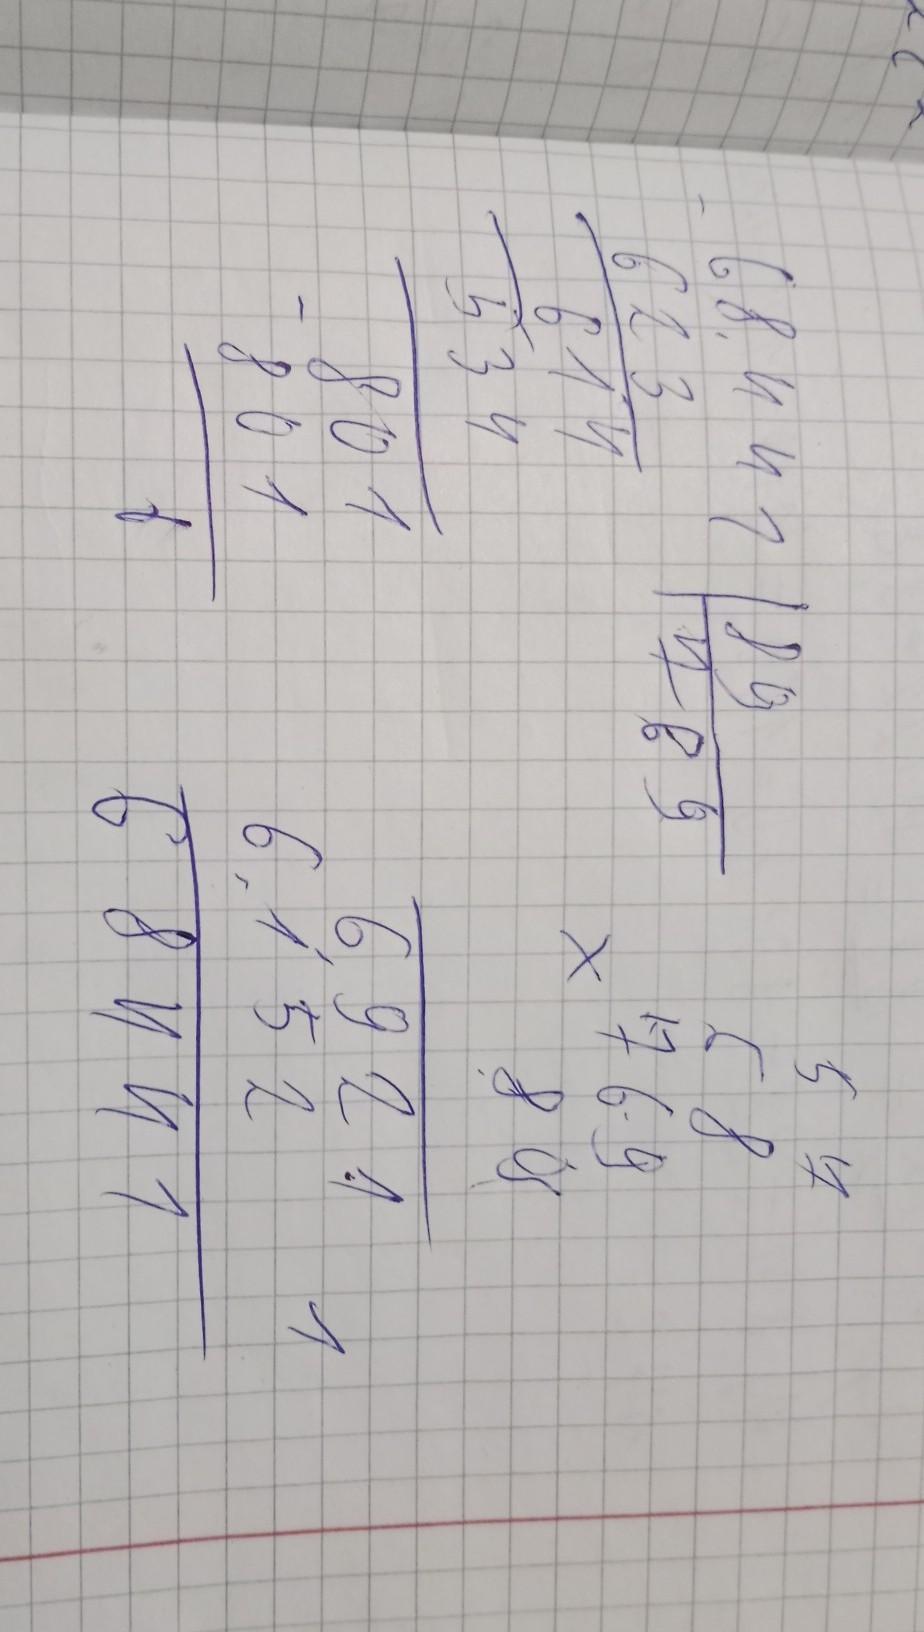 - 68441 | 89
623 | 769
614
534
801
- 801
5 7
6 8
769
x
89
6921
6152 1
68441